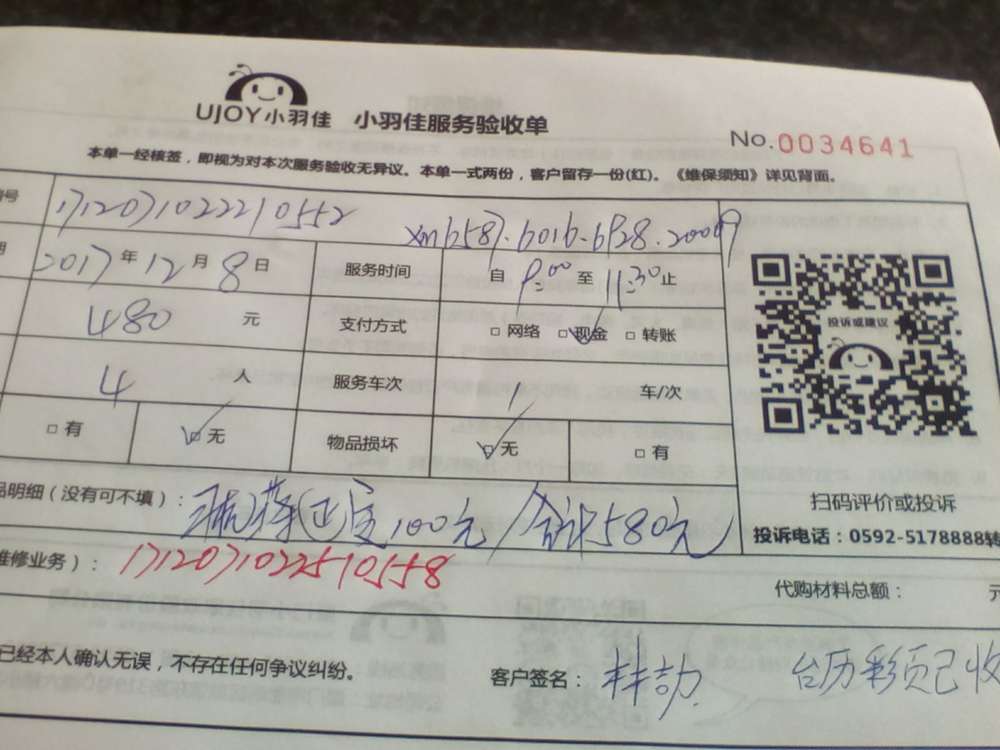 UJOY小羽佳 小羽佳服务验收单
No.0034641
本单一经核签，即视为对本次服务验收无异议。本单一式两份，客户留存一份(红)。《维保须知》详见背面。
编号 171207102221055２
2017年12月8日 服务时间 自9:00至11:30止
480元 支付方式 □网络 □现金 □转账
4人 服务车次 1 车/次
□有 □无 物品损坏 □无 □有
投诉或建议
扫码评价或投诉
投诉电话：0592-5178888转
品明细（没有可不填）： 100元/合计580元
维修业务）： 1712071022510558
代购材料总额： 元
已经本人确认无误，不存在任何争议纠纷。
客户签名： 台历彩页已收